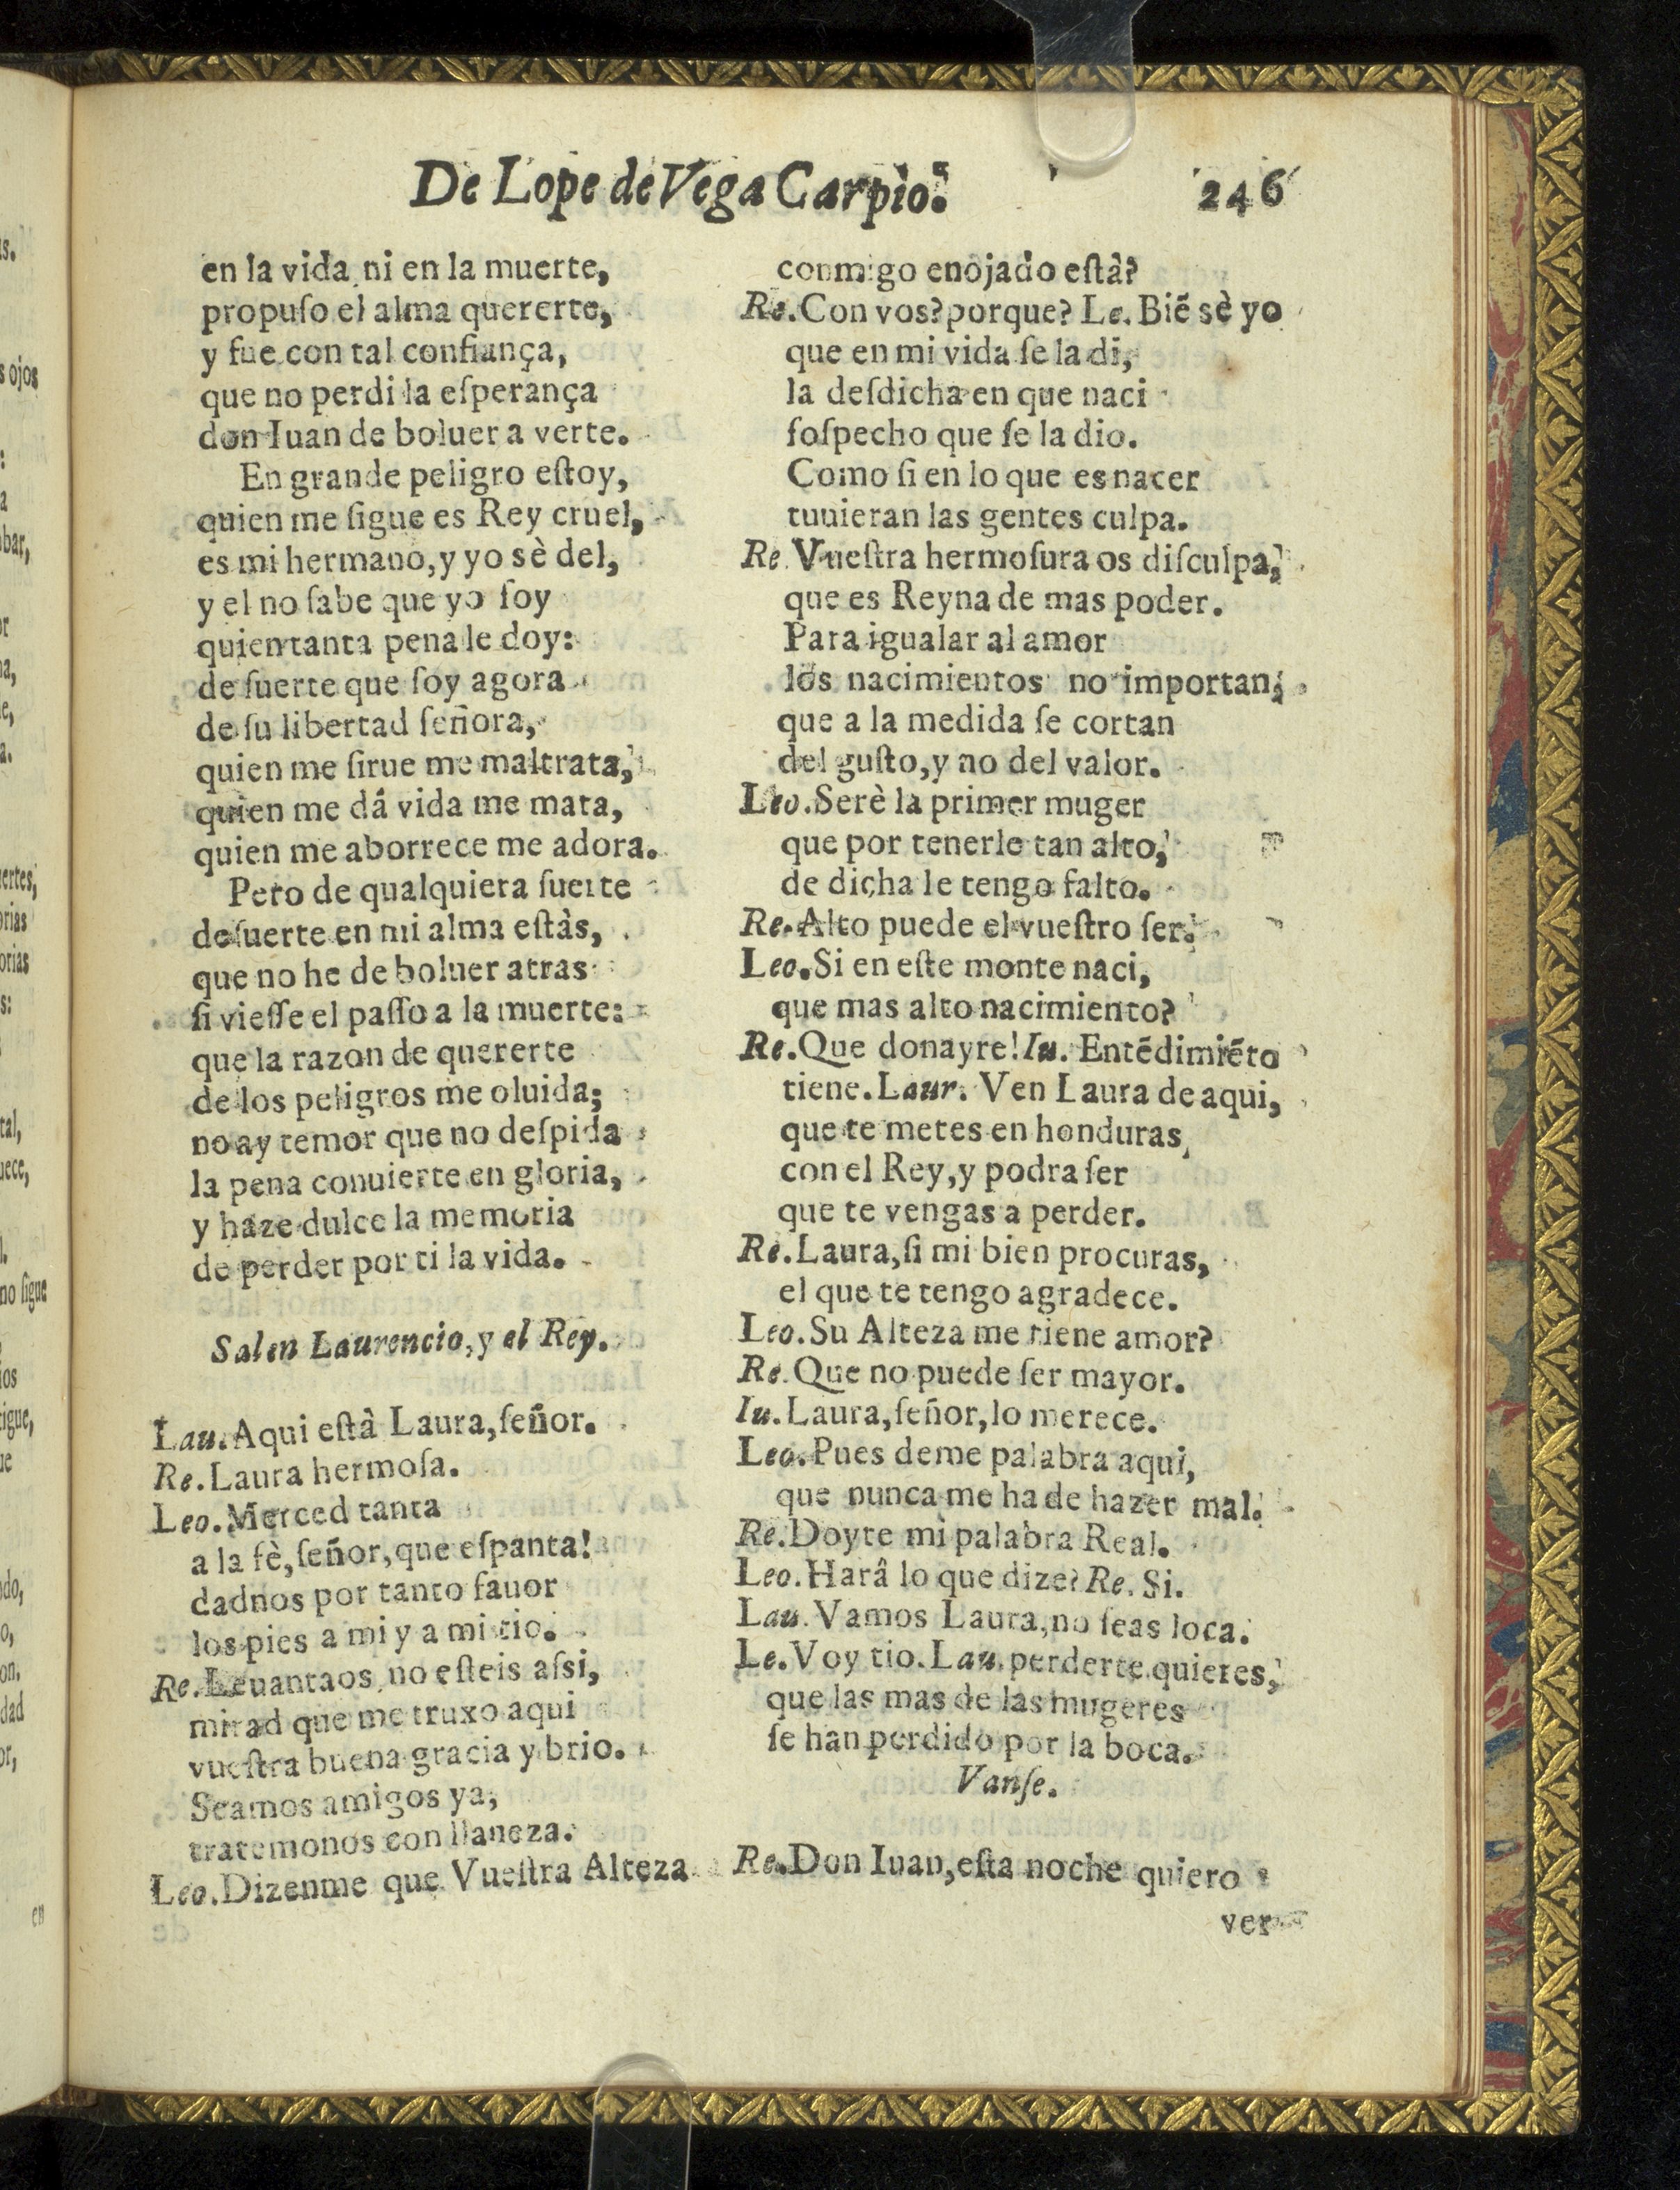 De Lope de Vega Carpio.
246
en la vida ni en la muerte,
propuſo el alma quererte,
y fue con tal confiança,
que no perdi la eſperança
don Iuan de boluer a verte.
En grande peligro eſtoy,
quien me ſigue es Rey cruel,
es mi hermano, y yo sè del,
y el no ſabe que yo ſoy
quien tanta pena le doy:
de ſuerte que ſoy agora
de ſu libertad ſeñora,
quien me ſirue me maltrata,
quien me dá vida me mata,
quien me aborrece me adora.
Pero de qualquiera ſuerte
de ſuerte en mi alma eſtàs,
que no he de boluer atras
ſi vieſſe el paſſo a la muerte:
que la razon de quererte
de los peligros me oluida;
no ay temor que no deſpida
la pena conuierte en gloria,
y haze dulce la memoria
de perder por ti la vida.
Salen Laurencio, y el Rey.
Lau. Aqui eſtà Laura, ſeñor.
Re. Laura hermoſa.
Leo. Merced tanta
a la fè, ſeñor, que eſpanta!
dadnos por tanto fauor
los pies a mi y a mi tio.
Re. Leuantaos, no eſteis aſsi,
mirad que me truxo aqui
vueſtra buena gracia y brio.
Seamos amigos ya,
tratemonos con llaneza.
Leo. Dizenme que Vueſtra Alteza
conmigo enojado eſtà?
Re. Con vos? porque? Le. Biẽ sè yo
que en mi vida ſe la di,
la deſdicha en que naci
ſoſpecho que ſe la dio.
Como ſi en lo que es nacer
tuuieran las gentes culpa.
Re. Vueſtra hermoſura os diſculpa,
que es Reyna de mas poder.
Para igualar al amor
los nacimientos no importan,
que a la medida ſe cortan
del guſto, y no del valor.
Leo. Serè la primer muger
que por tenerle tan alto,
de dicha le tengo falto.
Re. Alto puede el vueſtro ſer.
Leo. Si en eſte monte naci,
que mas alto nacimiento?
Re. Que donayre! Iu. Entẽdimiẽto
tiene. Laur. Ven Laura de aqui,
que te metes en honduras,
con el Rey, y podra ſer
que te vengas a perder.
Re. Laura, ſi mi bien procuras,
el que te tengo agradece.
Leo. Su Alteza me tiene amor?
Re. Que no puede ſer mayor.
Iu. Laura, ſeñor, lo merece.
Leo. Pues deme palabra aqui,
que nunca me ha de hazer mal.
Re. Doyte mi palabra Real.
Leo. Harâ lo que dize? Re. Si.
Lau. Vamos Laura, no ſeas loca.
Le. Voy tio. Lau. perderte quieres,
que las mas de las mugeres
ſe han perdido por la boca.
Vanſe.
Re. Don Iuan, eſta noche quiero
ver